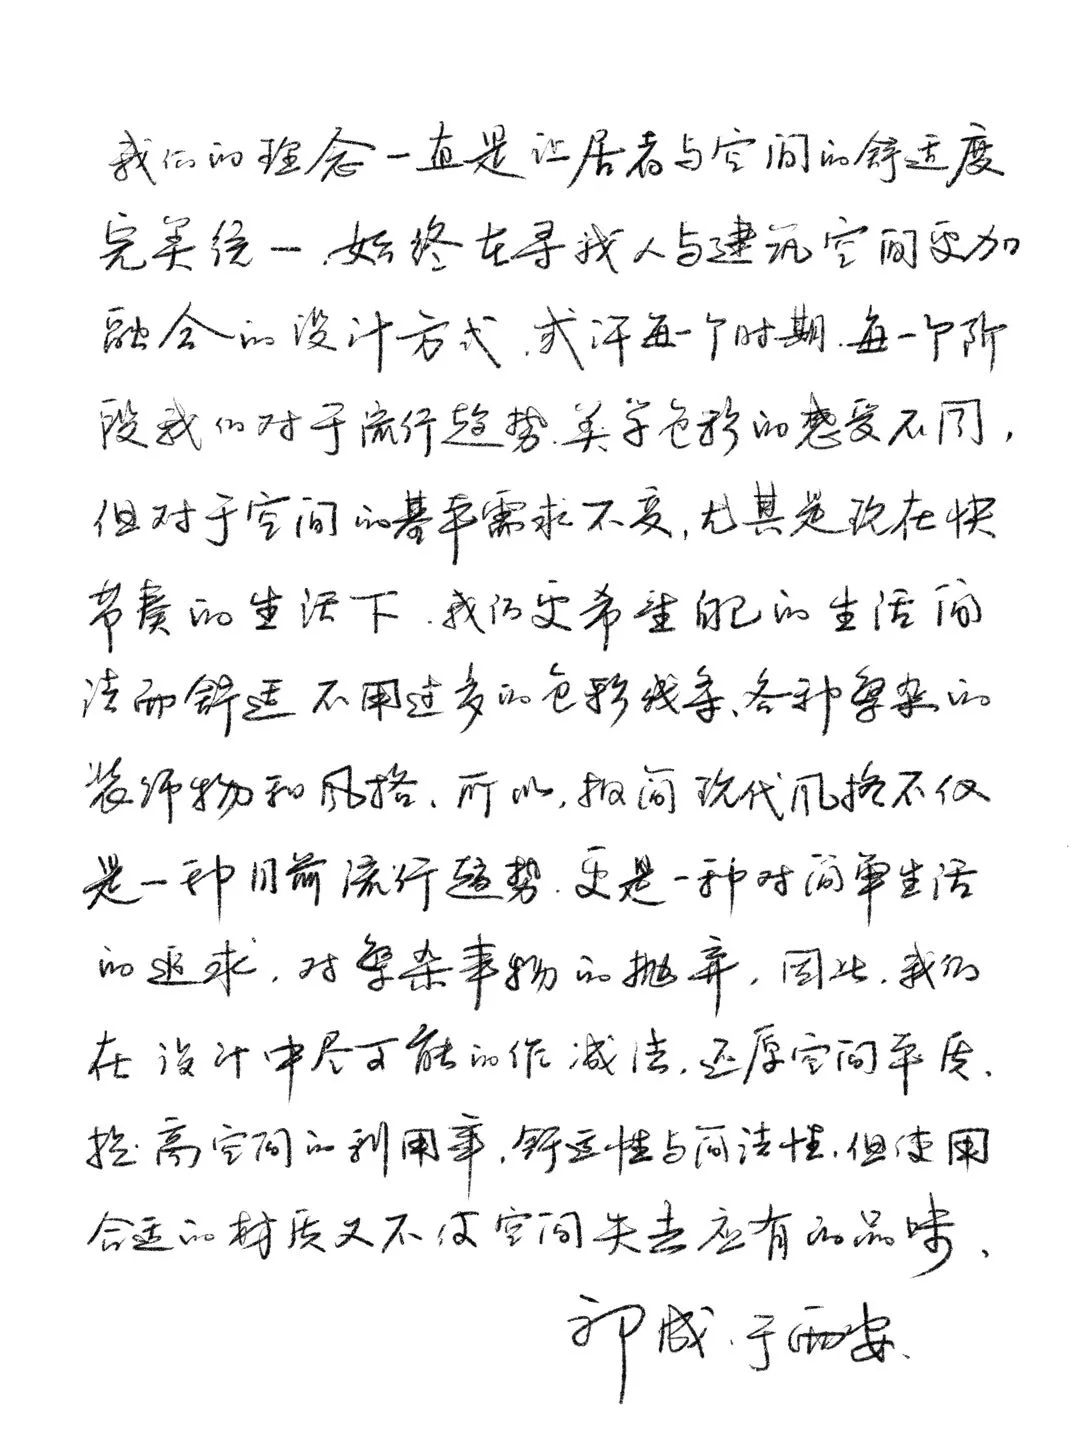 我们的理念一直是让居者与空间的舒适度
完美统一,始终在寻找人与建筑空间更加
融合的设计方式,或许每一个时期,每一个阶
段我们对于流行趋势、美学色彩的感受不同,
但对于空间的基本需求不变,尤其是现在快
节奏的生活下,我们更希望自己的生活简
洁而舒适 不用过多的色彩线条、各种繁杂的
装饰物和风格、所以,极简现代风格不仅
是一种目前流行趋势,更是一种对简单生活
的追求,对繁杂事物的抛弃,因此,我们
在设计中尽可能的作减法,还原空间本质、
提高空间的利用率,舒适性与简洁性,但使用
合适的材质又不使空间失去应有的品味、
祁成、于西安、